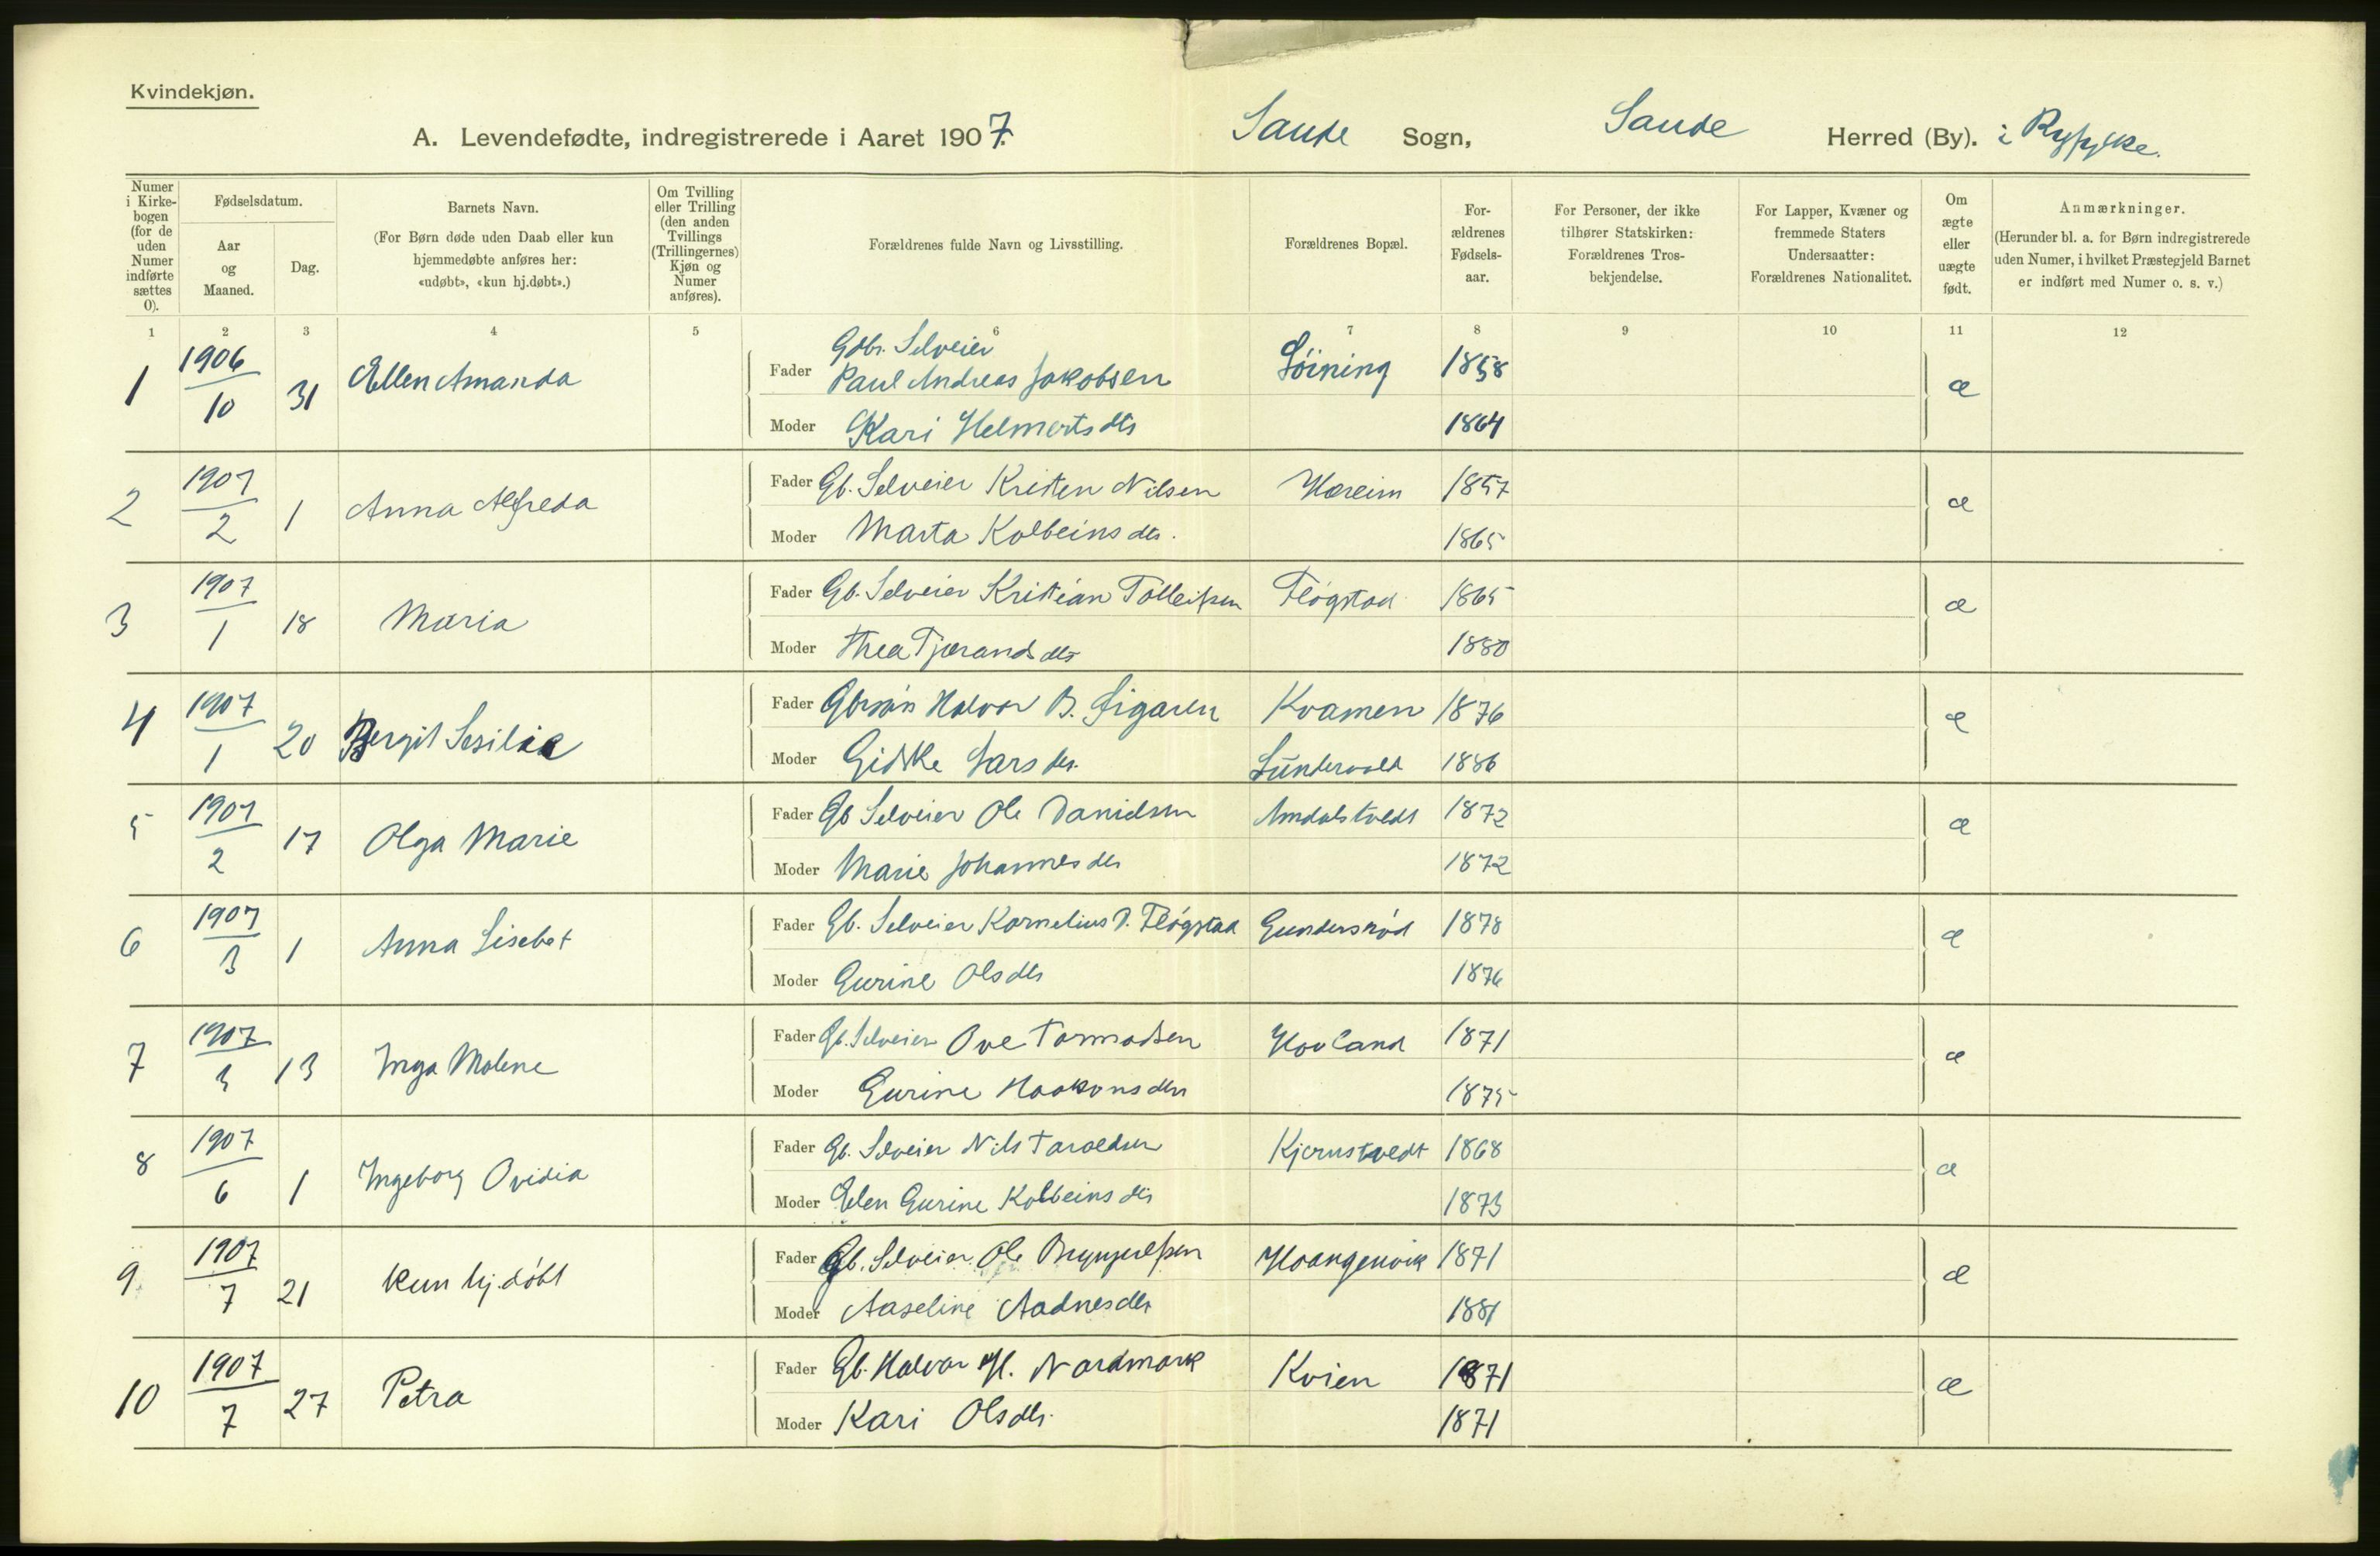 Kvindekjøn.
A. Levendefødte, indregistrerede i Aaret 1907. Saude Sogn, Saude Herred (By). i Ryfylke.
Numer i Kirkebogen (for de uden Numer indførte sættes 0).
Fødselsdatum.
Aar og Maaned.
Dag.
Barnets Navn.
(For Børn døde uden Daab eller kun hjemmedøbte anføres her: «udøbt», «kun hj.døbt».)
Om Tvilling eller Trilling (den anden Tvillings (Trillingernes) Kjøn og Numer anføres).
Forældrenes fulde Navn og Livsstilling.
Forældrenes Bopæl.
Forældrenes Fødselsaar.
For Personer, der ikke tilhører Statskirken: Forældrenes Trosbekjendelse.
For Lapper, Kvæner og fremmede Staters Undersaatter: Forældrenes Nationalitet.
Om ægte eller uægte født.
Anmærkninger.
(Herunder bl. a. for Børn indregistrerede uden Numer, i hvilket Præstegjeld Barnet er indført med Numer o. s. v.)
1 2 3 4 5 6 7 8 9 10 11 12
1 1906 10 31 Ellen Amanda
Fader Gdbr. Selveier Paul Andreas Jakobsen Löining 1858 æ
Moder Kari Helmertsdtr 1864
2 1907 2 1 Anna Alfreda
Fader Gb. Selveier Kristen Nilsen Hæreim 1857 æ
Moder Marta Kolbeinsdtr. 1865
3 1907 1 18 Maria
Fader Gb. Selveier Kristian Tolleifsen Fløgstad 1865 æ
Moder Thea Tjærandsdtr 1880
4 1907 1 20 Bergit Sesilie
Fader Halvor B. Kvamen 1876 æ
Moder Gidske Larsdtr. 1886
5 1907 2 17 Olga Marie
Fader Gb Selveier Ole Danielsen Amdalstvedt 1872 æ
Moder Marie Johannesdtr 1872
6 1907 3 1 Anna Lisebet
Fader Gb. Selveier Kornelius D. Fløgstad Gundersrød 1878 æ
Moder Gurine Olsdtr 1876
7 1907 3 13 Inga Malene
Fader Gb. Selveier Ove Tormodsen Hovland 1871 æ
Moder Gurine Haakonsdtr 1875
8 1907 6 1 Ingeborg Ovidia
Fader Gb. Selveier Nils Taraldsen Kjernstvedt 1868 æ
Moder Elen Gurine Kolbeinsdtr 1873
9 1907 7 21 kun hj.døbt
Fader Gb. Selveier Ole Brynjulfsen Hoangenvik 1871 æ
Moder Aaseline Aadnesdtr 1881
10 1907 7 27 Petra
Fader Gb. Halvor H. Nordmork Kvien 1871 æ
Moder Kari Olsdtr. 1871